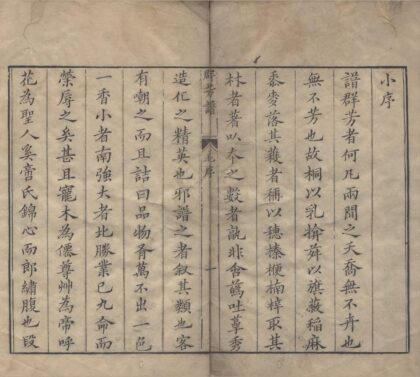 小序
譜群芳者何凡兩間之夭喬無不卉也
無不芳也故桐以乳掄舜以旗薇稻麻
黍麥落其蓛者稱以穗榛梗楠梓取其
材者著以本之數者孰非含蒍吐蕚秀
群芳譜
毛序
一
造化之精英也邪譜之者叙其類也客
有嘲之而且詰曰品物胥萬不出一色
一香小者南強大者北勝業已九命而
榮辱之矣甚且寵木為僊尊艸為帝呼
花為聖人奚啻氏錦心而郎繡腹也段